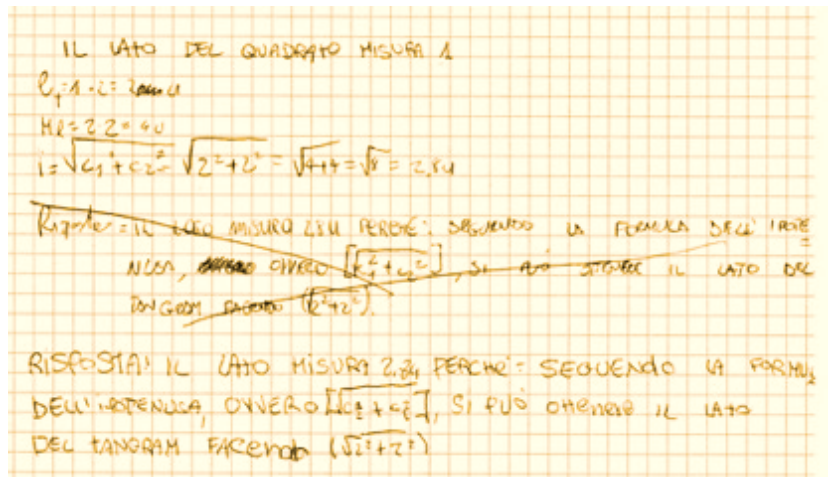 IL LATO DEL QUADRATO MISURA 1
l₁=1·2=2 u
MR=2·2=4u
i=√c₁²+c₂² √2²+2² = √4+4=√8= 2,8u
Risposta: IL LATO MISURA 2,8u PERCHÉ: SEGUENDO LA FORMULA DELL'IPOTE
NUSA, OVVERO [√c₁²+c₂²], SI PUÒ OTTENERE IL LATO DEL
TANGRAM FACENDO (√2²+2²).
RISPOSTA: IL LATO MISURA 2,8u PERCHÉ: SEGUENDO LA FORMULA
DELL'IPOTENUSA, OVVERO [√c₁²+c₂²], SI PUÒ OttENERE IL LATO
DEL tANGRAM FACENDO (√2²+2²)